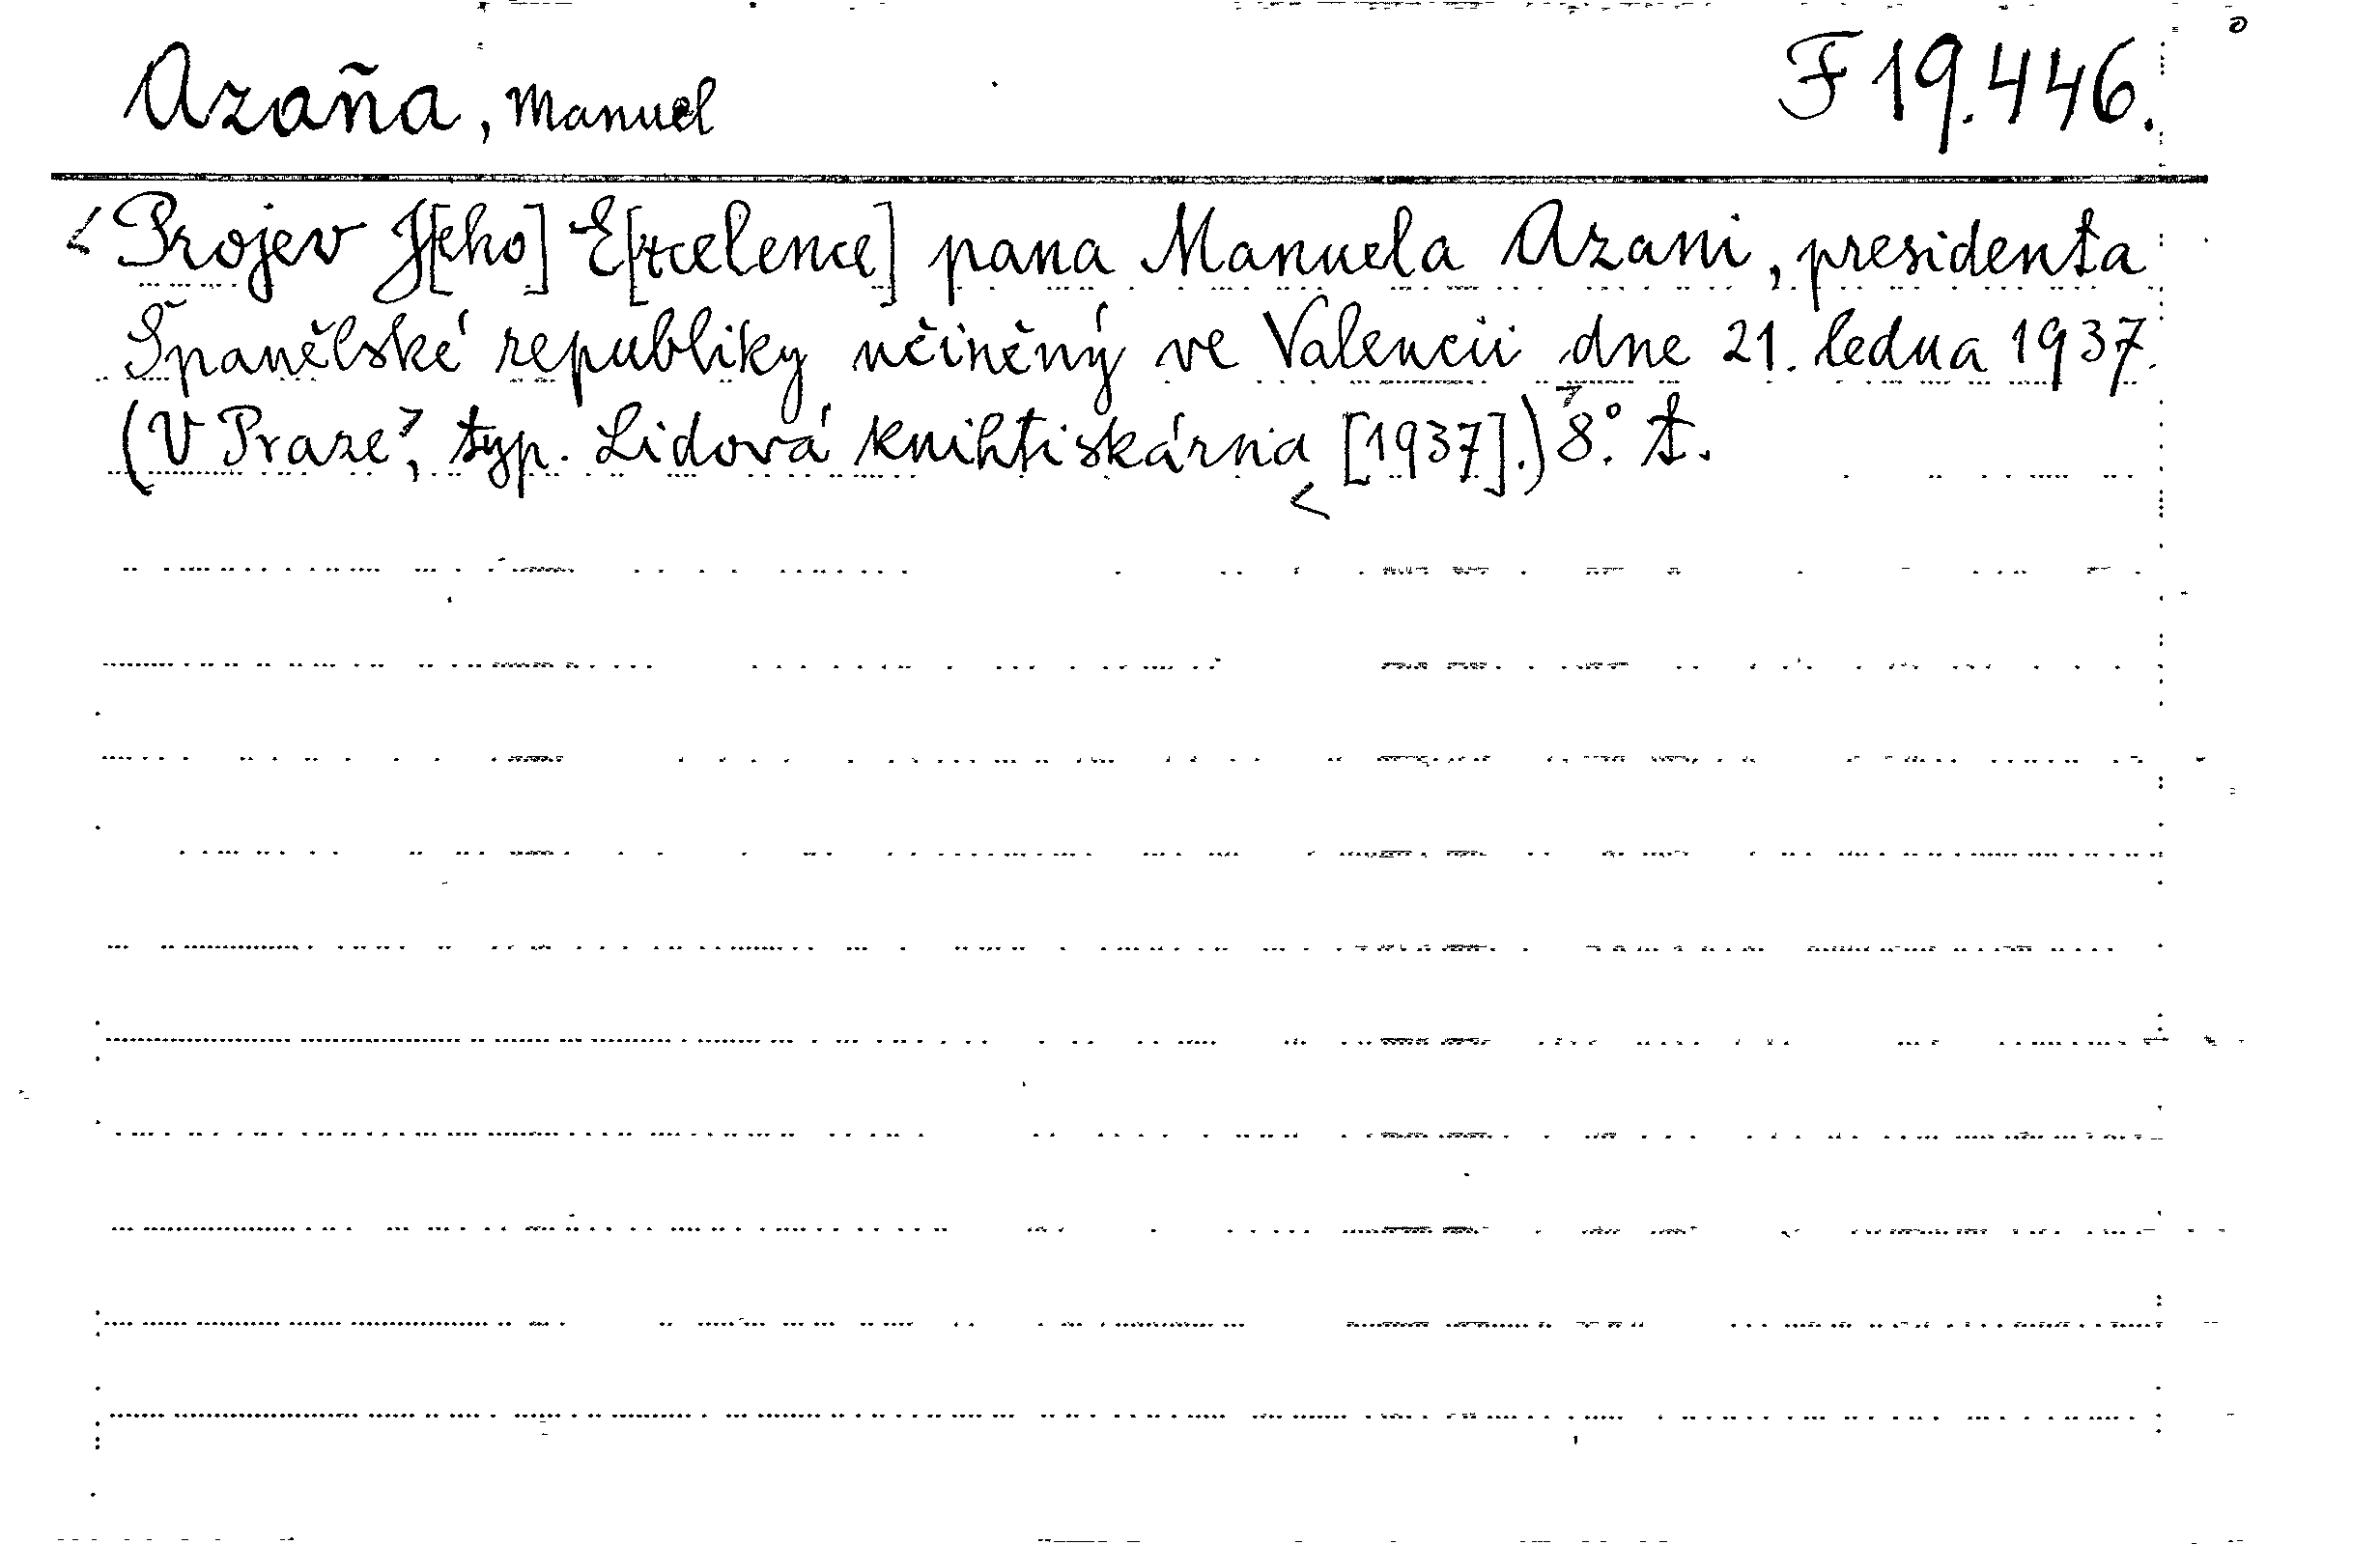 Azaña, Manuel F 19.446.
< Projev J[eho] E[xcelence] pana Manuela Azani, presidenta
Španělské republiky učiněný ve Valencii dne 21. ledna 1937.
(V Praze>, typ. Lidová knihtiskárna < [1937].)> 8°. A.